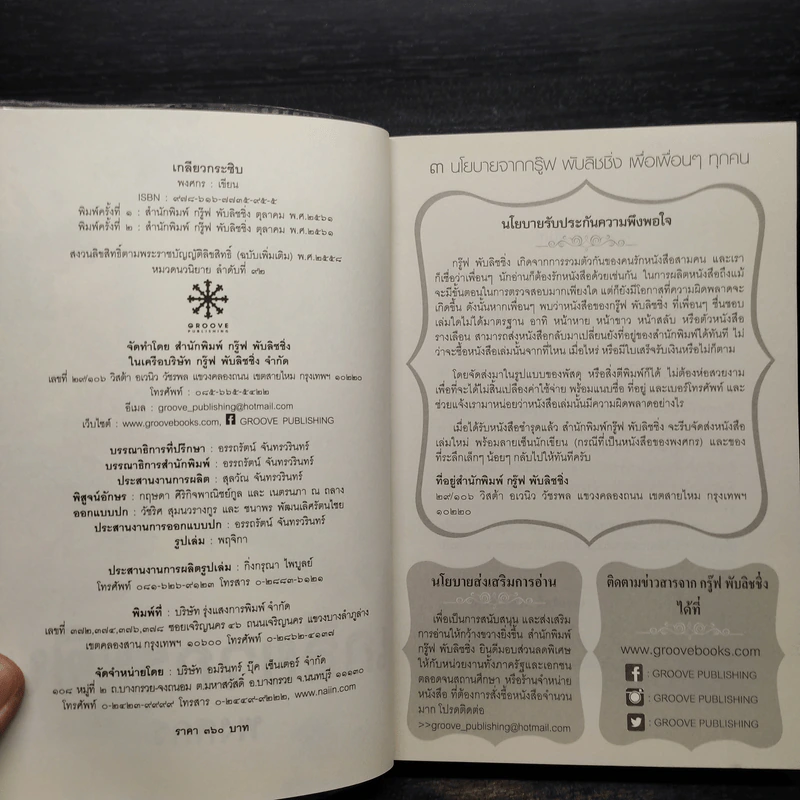 เกลียวกระซิบ
พงศกร : เขียน
ISBN : ๙๗๘-๖๑๖-๗๗๓๕-๙๕-๕
พิมพ์ครั้งที่ ๑ : สำนักพิมพ์ กรู๊ฟ พับลิชชิ่ง ตุลาคม พ.ศ.๒๕๖๑
พิมพ์ครั้งที่ ๒ : สำนักพิมพ์ กรู๊ฟ พับลิชชิ่ง ตุลาคม พ.ศ.๒๕๖๑
สงวนลิขสิทธิ์ตามพระราชบัญญัติลิขสิทธิ์ (ฉบับเพิ่มเติม) พ.ศ.๒๕๕๘
หมวดนวนิยาย ลำดับที่ ๙๒
GROOVE
PUBLISHING
จัดทำโดย สำนักพิมพ์ กรู๊ฟ พับลิชชิ่ง
ในเครือบริษัท กรู๊ฟ พับลิชชิ่ง จำกัด
เลขที่ ๒๙/๑๐๖ วิสต้า อเวนิว วัชรพล แขวงคลองถนน เขตสายไหม กรุงเทพฯ ๑๐๒๒๐
โทรศัพท์ : ๐๘๕-๖๖๕-๕๔๒๒
อีเมล : groove_publishing@hotmail.com
เว็บไซต์ : www.groovebooks.com, f GROOVE PUBLISHING
บรรณาธิการที่ปรึกษา : อรรถรัตน์ จันทรวรินทร์
บรรณาธิการสำนักพิมพ์ : อรรถรัตน์ จันทรวรินทร์
ประสานงานการผลิต : สุลวัณ จันทรวรินทร์
พิสูจน์อักษร : กฤษดา ศิริกิจพาณิชย์กูล และ เนตรนภา ณ ถลาง
ออกแบบปก : วัชริศ สุมนวรางกูร และ ชนาพร พัฒนเลิศรัตนไชย
ประสานงานการออกแบบปก : อรรถรัตน์ จันทรวรินทร์
รูปเล่ม : พฤจิกา
ประสานงานการผลิตรูปเล่ม : กิ่งกรุณา ไพบูลย์
โทรศัพท์ ๐๘๑-๖๒๖-๙๑๒๓ โทรสาร ๐-๒๘๘๓-๖๑๒๑
พิมพ์ที่ : บริษัท รุ่งแสงการพิมพ์ จำกัด
เลขที่ ๓๗๒,๓๗๔,๓๗๖,๓๗๘ ซอยเจริญนคร ๔๖ ถนนเจริญนคร แขวงบางลำภูล่าง
เขตคลองสาน กรุงเทพฯ ๑๐๖๐๐ โทรศัพท์ ๐-๒๘๖๒-๔๑๓๗
จัดจำหน่ายโดย : บริษัท อมรินทร์ บุ๊ค เซ็นเตอร์ จำกัด
๑๐๘ หมู่ที่ ๒ ถ.บางกรวย-จงถนอม ต.มหาสวัสดิ์ อ.บางกรวย จ.นนทบุรี ๑๑๑๓๐
โทรศัพท์ ๐-๒๔๒๓-๙๙๙๙ โทรสาร ๐-๒๔๔๙-๙๒๒๒, www.naiin.com
ราคา ๓๖๐ บาท
๓ นโยบายจากกรู๊ฟ พับลิชชิ่ง เพื่อเพื่อนๆ ทุกคน
นโยบายรับประกันความพึงพอใจ
กรู๊ฟ พับลิชชิ่ง เกิดจากการรวมตัวกันของคนรักหนังสือสามคน และเรา
ก็เชื่อว่าเพื่อนๆ นักอ่านก็ต้องรักหนังสือด้วยเช่นกัน ในการผลิตหนังสือถึงแม้
จะมีขั้นตอนในการตรวจสอบมากเพียงใด แต่ก็ยังมีโอกาสที่ความผิดพลาดจะ
เกิดขึ้น ดังนั้นหากเพื่อนๆ พบว่าหนังสือของกรู๊ฟ พับลิชชิ่ง ที่เพื่อนๆ ชื่นชอบ
เล่มใดไม่ได้มาตรฐาน อาทิ หน้าหาย หน้าขาว หน้าสลับ หรือตัวหนังสือ
รางเลือน สามารถส่งหนังสือกลับมาเปลี่ยนยังที่อยู่ของสำนักพิมพ์ได้ทันที ไม่
ว่าจะซื้อหนังสือเล่มนั้นจากที่ไหน เมื่อไหร่ หรือมีใบเสร็จรับเงินหรือไม่ก็ตาม
โดยจัดส่งมาในรูปแบบของพัสดุ หรือสิ่งตีพิมพ์ก็ได้ ไม่ต้องห่อสวยงาม
เพื่อที่จะได้ไม่สิ้นเปลืองค่าใช้จ่าย พร้อมแนบชื่อ ที่อยู่ และเบอร์โทรศัพท์ และ
ช่วยแจ้งเรามาหน่อยว่าหนังสือเล่มนั้นมีความผิดพลาดอย่างไร
เมื่อได้รับหนังสือชำรุดแล้ว สำนักพิมพ์กรู๊ฟ พับลิชชิ่ง จะรีบจัดส่งหนังสือ
เล่มใหม่ พร้อมลายเซ็นนักเขียน (กรณีที่เป็นหนังสือของพงศกร) และของ
ที่ระลึกเล็กๆ น้อยๆ กลับไปให้ทันทีครับ
ที่อยู่สำนักพิมพ์ กรู๊ฟ พับลิชชิ่ง
๒๙/๑๐๖ วิสต้า อเวนิว วัชรพล แขวงคลองถนน เขตสายไหม กรุงเทพฯ
๑๐๒๒๐
นโยบายส่งเสริมการอ่าน
เพื่อเป็นการสนับสนุน และส่งเสริม
การอ่านให้กว้างขวางยิ่งขึ้น สำนักพิมพ์
กรู๊ฟ พับลิชชิ่ง ยินดีมอบส่วนลดพิเศษ
ให้กับหน่วยงานทั้งภาครัฐและเอกชน
ตลอดจนสถานศึกษา หรือร้านจำหน่าย
หนังสือ ที่ต้องการสั่งซื้อหนังสือจำนวน
มาก โปรดติดต่อ
>>groove_publishing@hotmail.com
ติดตามข่าวสารจาก กรู๊ฟ พับลิชชิ่ง
ได้ที่
www.groovebooks.com
f : GROOVE PUBLISHING
: GROOVE PUBLISHING
: GROOVE PUBLISHING